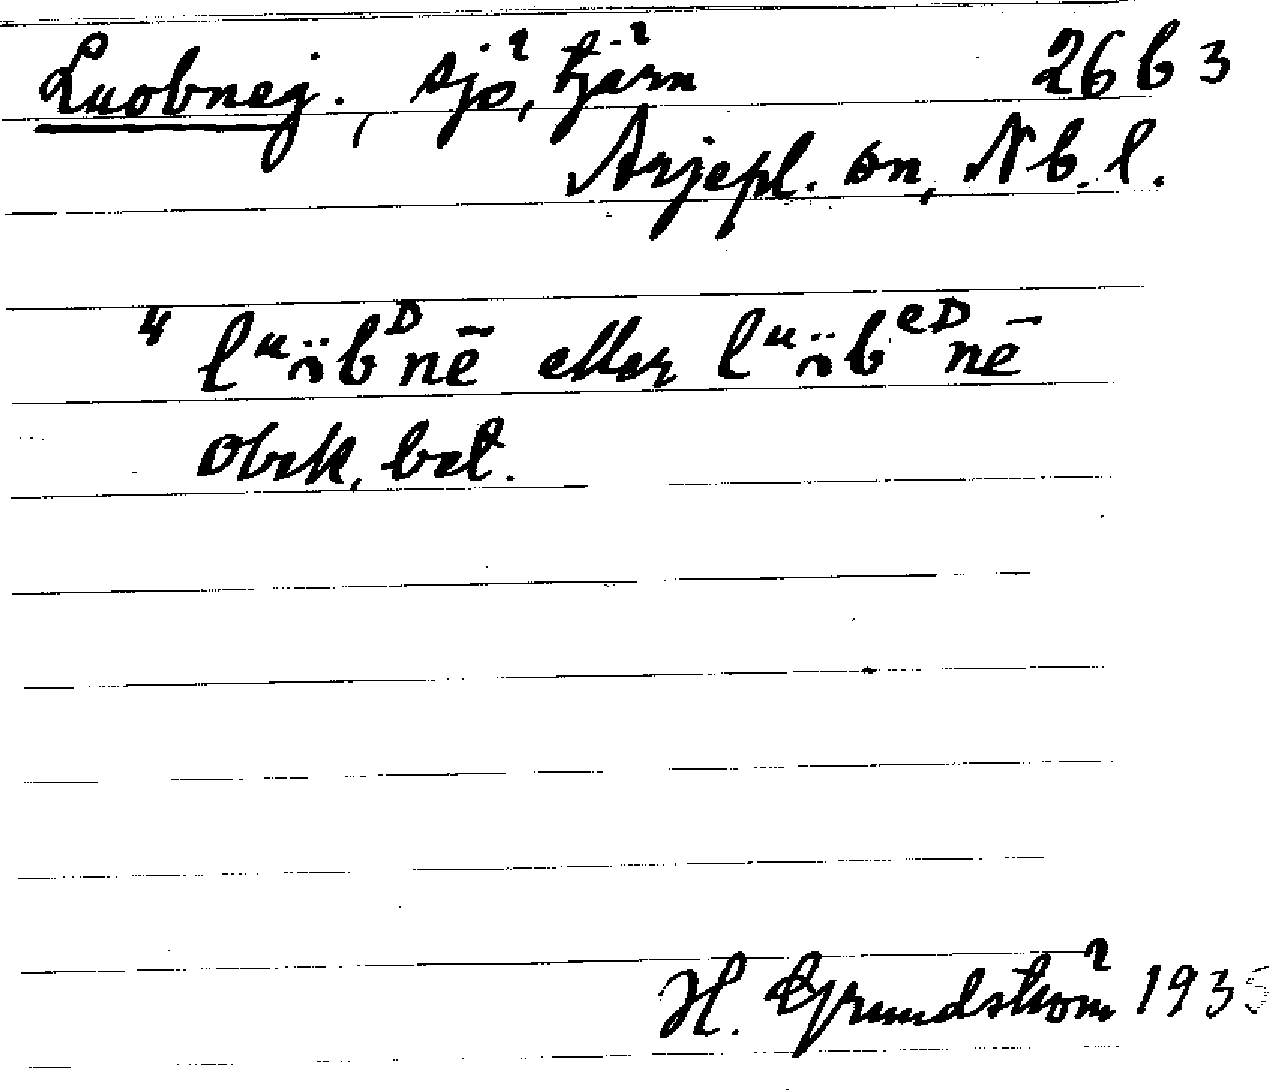 Luobnej., sjö, tjärn 26 b 3
Arjepl. sn, Nb. l.
4 lᵘɔ̈bᴰnē eller lᵘɔ̈bᵉᴰnē
Obek. bet.
H. Grundström 1935